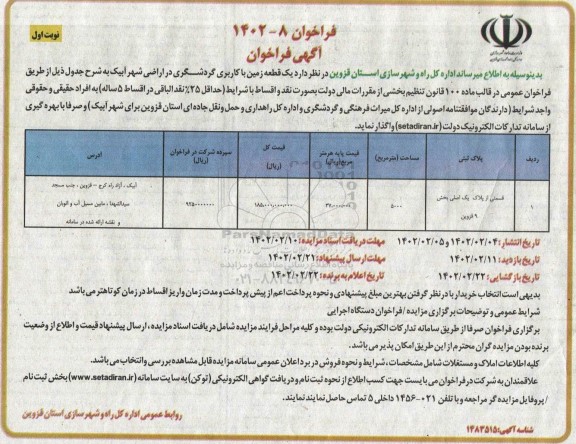 فراخوان ۸-۱۴۰۲
آگهی فراخوان
نوبت اول
بدینوسیله به اطلاع میرساند اداره کل راه و شهرسازی استان قزوین در نظر دارد یک قطعه زمین با کاربری گردشگری در اراضی شهر آبیک به شرح جدول ذیل از طریق
فراخوان عمومی در قالب ماده ۱۰۰ قانون تنظیم بخشی از مقررات مالی دولت بصورت نقد و اقساط با شرایط (حداقل ۲۵٪ نقد الباقی در اقساط ۵ ساله) به افراد حقیقی و حقوقی
واجد شرایط (دارندگان موافقتنامه اصولی از اداره کل میراث فرهنگی و گردشگری و اداره کل راهداری و حمل ونقل جاده ای استان قزوین برای شهر آبیک) و صرفا با بهره گیری
از سامانه تدارکات الکترونیک دولت (setadiran.ir) واگذار نماید.
ردیف پلاک ثبتی مساحت (مترمربع) قیمت پایه هر متر مربع (ریال) قیمت کل (ریال) سپرده شرکت در فراخوان (ریال) آدرس
۱ قسمتی از پلاک یک اصلی بخش ۹ قزوین ۵۰۰۰ ۳۷،۰۰۰،۰۰۰ ۱۸۵،۰۰۰،۰۰۰،۰۰۰ ۹۲۵۰۰۰۰۰۰۰ آبیک، آزاد راه کرج – قزوین، جنب مسجد سیدالشهدا، مابین مسیل آب و اتوبان و نقشه ارائه شده در سامانه
تاریخ انتشار: ۱۴۰۲/۰۲/۰۴ و ۱۴۰۲/۰۲/۰۵ مهلت دریافت اسناد مزایده: ۱۴۰۲/۰۲/۱۰
تاریخ بازدید: ۱۴۰۲/۰۲/۱۱ مهلت ارسال پیشنهاد: ۱۴۰۲/۰۲/۲۱
تاریخ بازگشایی: ۱۴۰۲/۰۲/۲۲ تاریخ اعلام به برنده: ۱۴۰۲/۰۲/۲۲
بدیهی است انتخاب خریدار با در نظر گرفتن بهترین مبلغ پیشنهادی و نحوه پرداخت اعم از پیش پرداخت و مدت زمان واریز اقساط در زمان کوتاهتر می باشد
شرایط عمومی و توضیحات برگزاری مزایده / فراخوان دستگاه اجرایی
برگزاری فراخوان صرفا از طریق سامانه تدارکات الکترونیکی دولت بوده و کلیه مراحل فرایند مزایده شامل دریافت اسناد مزایده، ارسال پیشنهاد قیمت و اطلاع از وضعیت
برنده بودن مزایده گران محترم از این طریق امکان پذیر می باشد.
کلیه اطلاعات املاک و مستغلات شامل مشخصات، شرایط و نحوه فروش در برد اعلان عمومی سامانه مزایده قابل مشاهده بررسی و انتخاب می باشد.
علاقمندان به شرکت در فراخوان می بایست جهت کسب اطلاع از نحوه ثبت نام و دریافت گواهی الکترونیکی (توکن) به سایت سامانه (www.setadiran.ir) بخش ثبت نام
/ پروفایل مزایده گر مراجعه و با تلفن ۰۲۱-۱۴۵۶ داخلی ۵ تماس حاصل نمایند نمایند.
روابط عمومی اداره کل راه و شهرسازی استان قزوین
شناسه آگهی: ۱۴۸۳۵۱۵